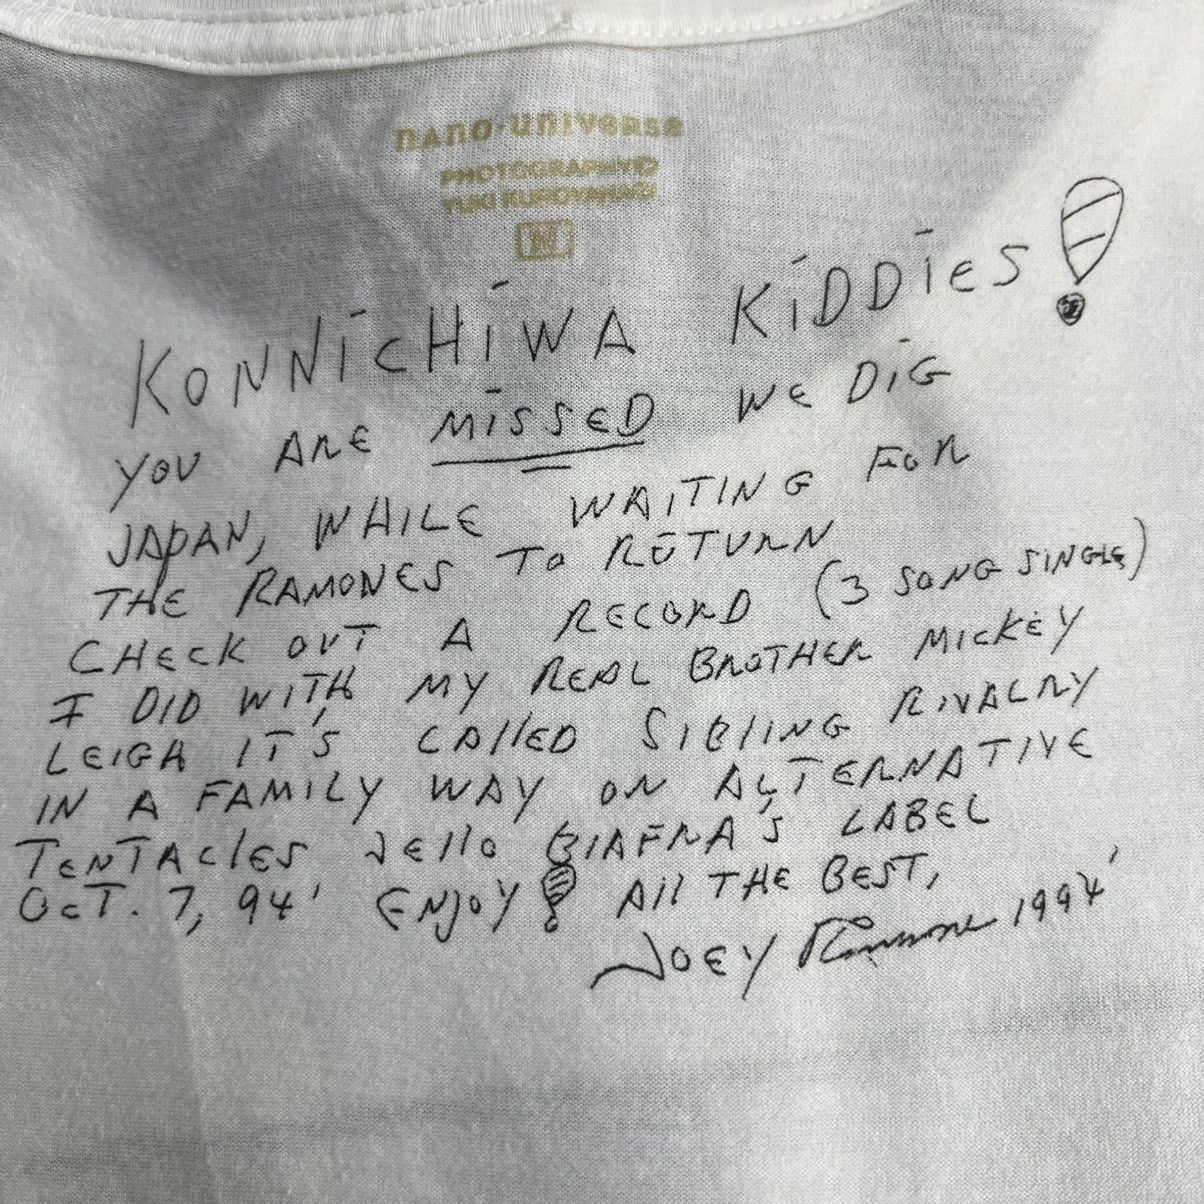 nano·universe
PHOTOGRAPHY©
YUKI KUROYANAGI
M
KONNiCHiWA KiDDiES!
YOU ARE MiSSED WE DiG
JAPAN, WHILE WAITING FOR
THE RAMONES TO RETURN
CHECK OUT A RECORD (3 SONG SINGLE)
I DID WITH MY REAL BROTHER MICKEY
LEIGH IT'S CAllED SIBlING RIVALRY
IN A FAMILY WAY ON ALTERNATIVE
TENTAClES JEllO BIAFRA'S LABEL
OCT. 7, 94' ENJOY! All THE BEST,
JOEY Ramone 1994'